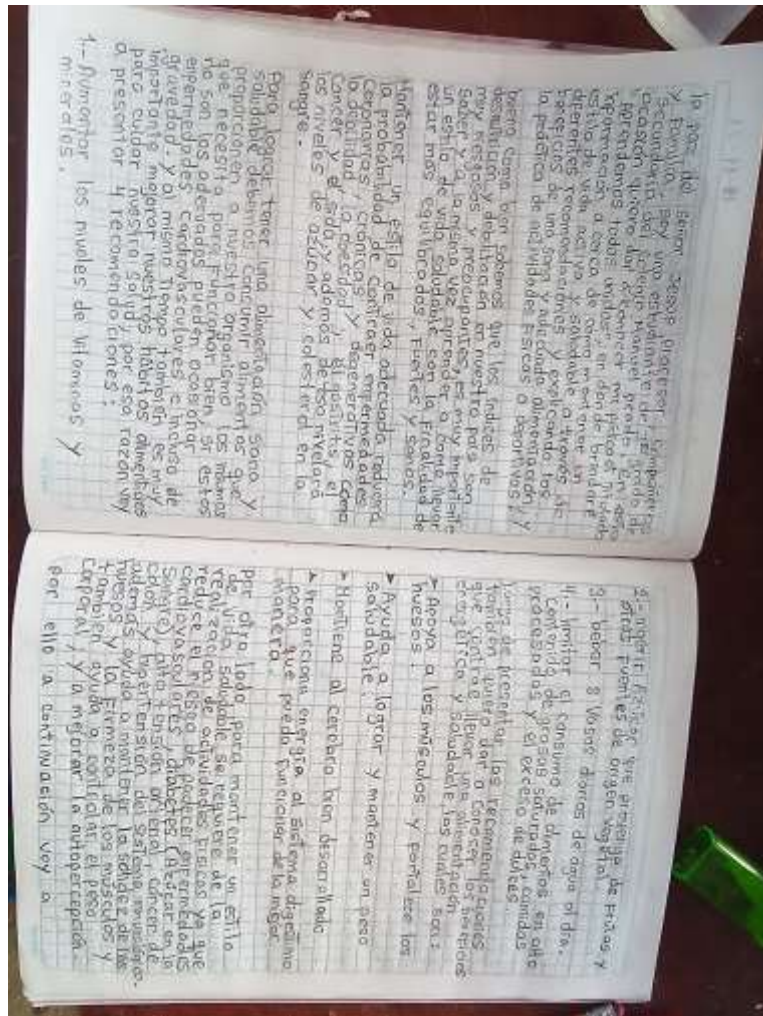 la paz del señor Jesús profesor, compañeros
y familia, soy una estudiante de grado de
secundaria del colegio Manuel prado, en esta
ocasión quiero dar a conocer mi podcast titulado
"Aprendamos todos unidos", en donde brindaré
información a cerca de cómo mantener un
estilo de vida activa y saludable a través de
diferentes recomendaciones y explicando los
beneficios de una sana y adecuada alimentación y
la práctica de actividades físicas o deportivas, y
bueno como bien sabemos que los índices de
desnutrición y debilitación en nuestro país son
muy riesgosos y preocupantes, es muy importante
saber y a la misma vez aprender a como llevar
un estilo de vida saludable con la finalidad de
estar mas equilibrados, fuertes y sanos.
Mantener un estilo de vida adecuada reducerá
la probabilidad de contraer enfermedades
coronarias, crónicas y degenerativas como
la obesidad, el
Cáncer y el sida, y además de eso nivelará
los niveles de azúcar y colesterol en la
sangre.
Para lograr tener una alimentación sana y
saludable debemos consumir alimentos que
proporcionen a nuestro organismo los mismos
que necesita para funcionar bien, si estos
no son los adecuados pueden ocasionar
enfermedades cardiovasculares e incluso de
gravedad, y al mismo tiempo también es muy
importante mejorar nuestros hábitos alimentares
para cuidar nuestra salud, por esa razón voy
a presentar 4 recomendaciones:
1.- Aumentar los niveles de vitaminas y
minerales.
2.- ingerir Azúcar que provenga de frutas y
otras fuentes de origen vegetal.
3.- beber 8 vasos diarios de agua al día.
4.- limitar el consumo de alimentos en alto
Contenido de grasas saturadas, comidas
procesadas y el exceso de dulces.
luego de presentar las recomendaciones
también quiero dar a conocer los beneficios
que contrae llevar una alimentación
energética y saludable los cuales son:
➤ Apoya a los músculos y fortalece los
huesos.
➤ Ayuda a lograr y mantener un peso
saludable.
➤ Mantiene al cerebro bien desarrollado
➤ Proporciona energía al sistema digestivo
para que pueda funcionar de la mejor
manera.
por otro lado para mantener un estilo
de vida saludable se requiere de la
realización de actividades físicas ya que
reduce el riesgo de padecer enfermedades
cardiovasculares, diabetes (Azúcar en la
sangre), alta tensión arterial, cáncer de
colon y hipertensión del sistema
además ayuda a mantener la solidez de los
huesos y la firmeza de los músculos y
también ayuda a controlar el peso
corporal, y a mejorar la autopercepción.
por ello a continuación voy a